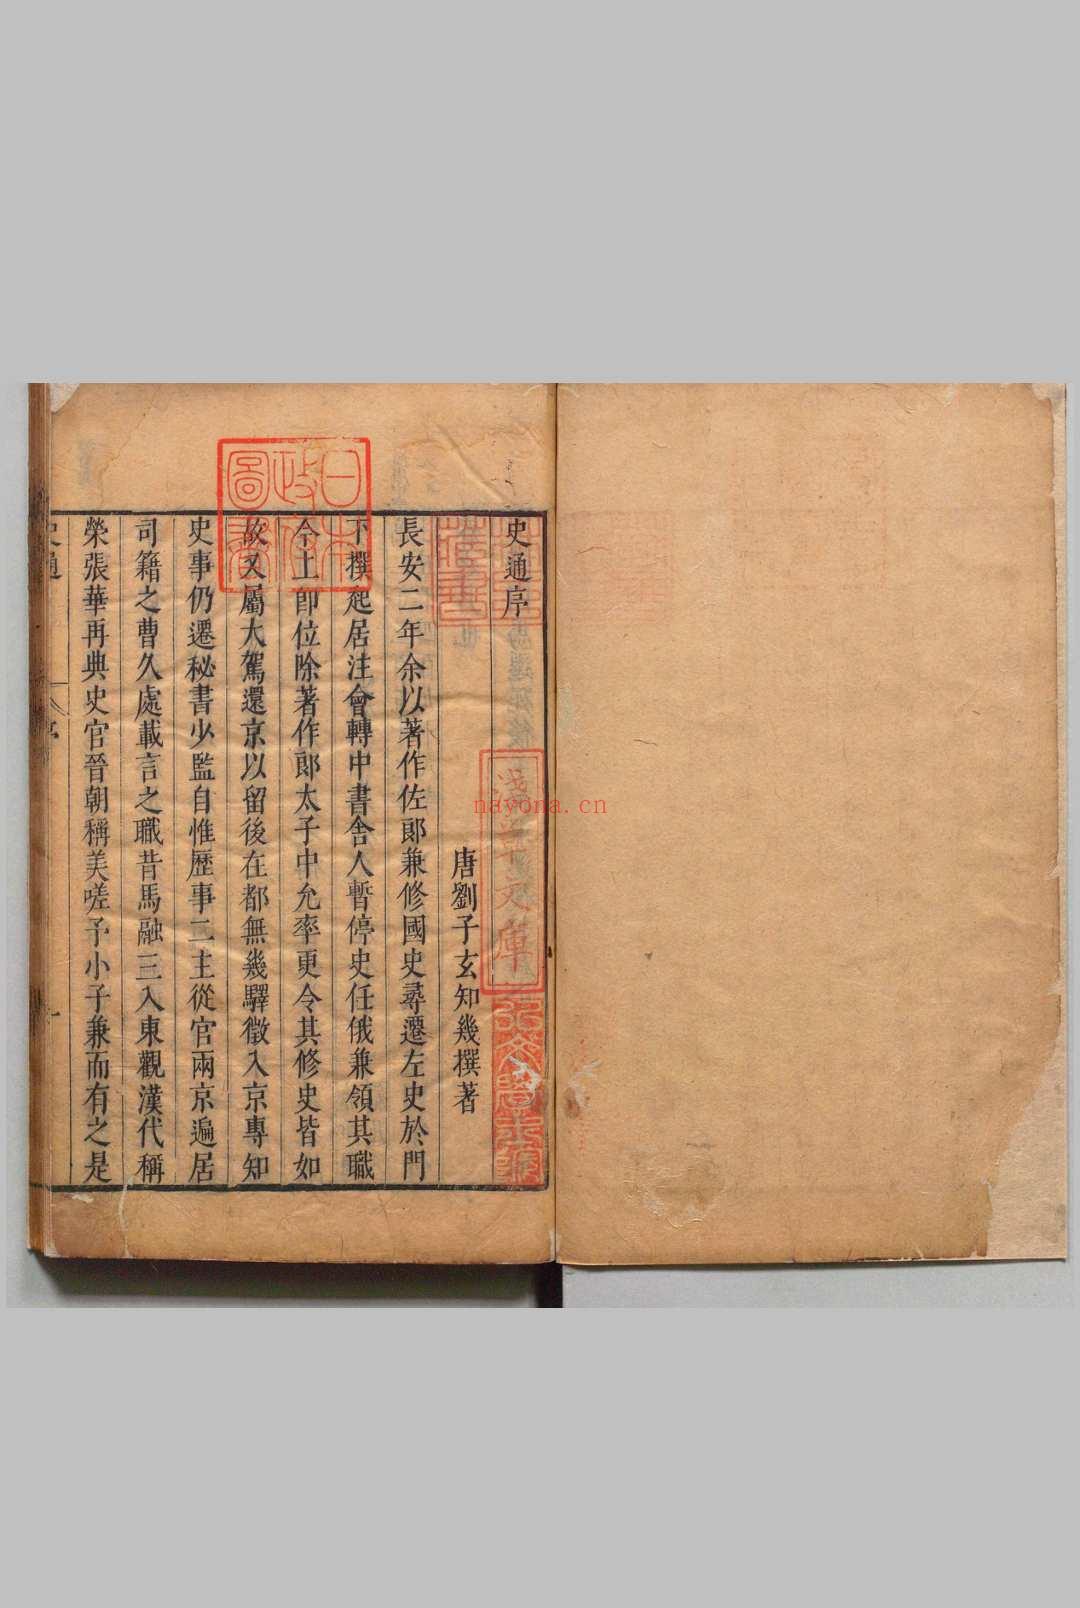 史通序
唐劉子玄知幾撰著
長安二年余以著作佐郎兼修國史尋遷左史於門
下撰起居注會轉中書舍人暫停史任俄兼領其職
今上即位除著作郎太子中允率更令其修史皆如
故又屬大駕還京以留後在都無幾驛徵入京專知
史事仍遷秘書少監自惟歷事二主從官兩京遍居
司籍之曹久處載言之職昔馬融三入東觀漢代稱
榮張華再典史官晉朝稱美嗟予小子兼而有之是
史通
序
一
日本
政府
圖書
淺草文庫
nayona.cn